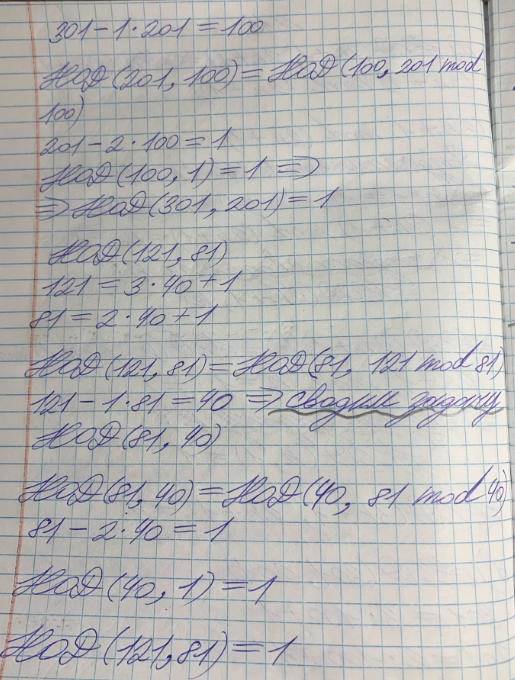 301 - 1 · 201 = 100
НОД (201, 100) = НОД (100, 201 mod
100)
201 - 2 · 100 = 1
НОД (100, 1) = 1 ⇒
⇒ НОД (301, 201) = 1
НОД (121, 81)
121 = 3 · 40 + 1
81 = 2 · 40 + 1
НОД (121, 81) = НОД (81, 121 mod 81)
121 - 1 · 81 = 40 ⇒ сводим задачу
НОД (81, 40)
НОД (81, 40) = НОД (40, 81 mod 40)
81 - 2 · 40 = 1
НОД (40, 1) = 1
НОД (121, 81) = 1